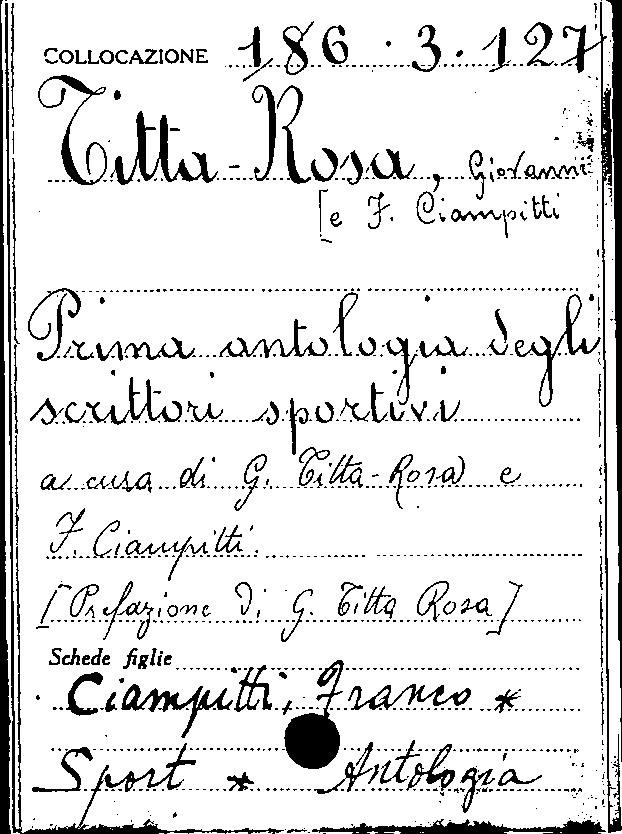 COLLOCAZIONE 186.3.127
Titta-Rosa, Giovanni
[e F. Ciampitti
Prima antologia degli
scrittori sportivi
a cura di G. Titta-Rosa e
F. Ciampitti.
[Prefazione di G. Titta Rosa]
Schede figlie
Ciampitti, Franco *
Sport * Antologia